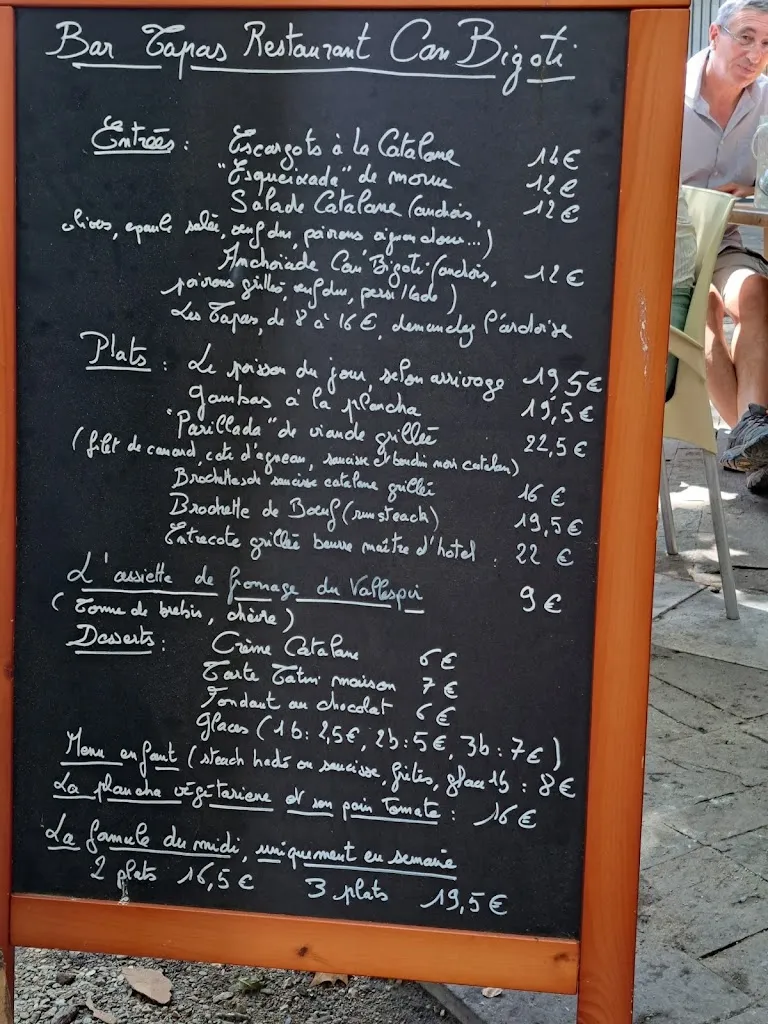 Bar Tapas Restaurant Can Bigoti
Entrées : Escargots à la Catalane 14€
"Esqueixade" de morue 12€
Salade Catalane (anchois, 12€
olives, epaule salée, œuf dur, poivrons, oignon doux...)
Anchoiade Can Bigoti (anchois, 12€
poivrons grillés, œuf dur, persillade)
Les Tapas, de 8 à 16€, demandez l'ardoise
Plats : Le poisson du jour, selon arrivage 19,5€
Gambas à la plancha 19,5€
"Parillada" de viande grillée 22,5€
(filet de canard, cote d'agneau, saucisse et boudin noir catalan)
Brochette de saucisse catalane grillée 16€
Brochette de Bœuf (rumsteack) 19,5€
Entrecote grillée beurre maître d'hotel 22€
L'assiette de fromage du Vallespir 9€
(Tomme de brebis, chèvre)
Desserts : Crème Catalane 6€
Tarte Tatin maison 7€
Fondant au chocolat 6€
Glaces (1b : 2,5€, 2b : 5€, 3b : 7€)
Menu enfant (steack haché ou saucisse, frites, glace 1b : 8€
La plancha végétarienne et son pain Tomate : 16€
La formule du midi, uniquement en semaine
2 plats 16,5€ 3 plats 19,5€